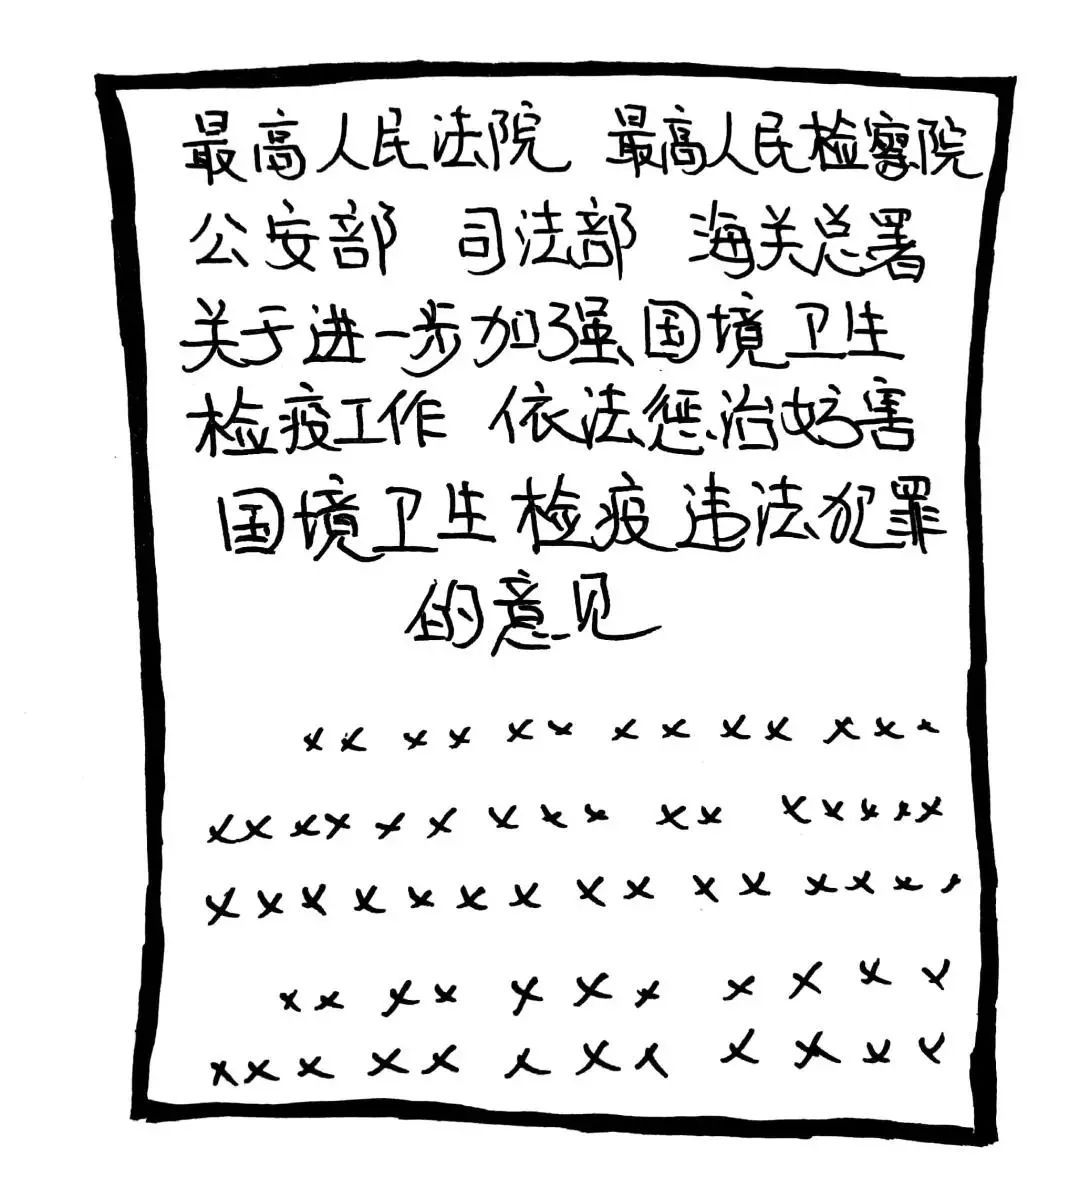 最高人民法院 最高人民检察院
公安部 司法部 海关总署
关于进一步加强国境卫生
检疫工作 依法惩治妨害
国境卫生检疫违法犯罪
的意见
×× ×× ×× ×× ×× ×××
×××× ×× ××× ×× ×××××
××××××× ×× ×× ××××
×× ×× ××× ××××
××× ×× ××× ××××